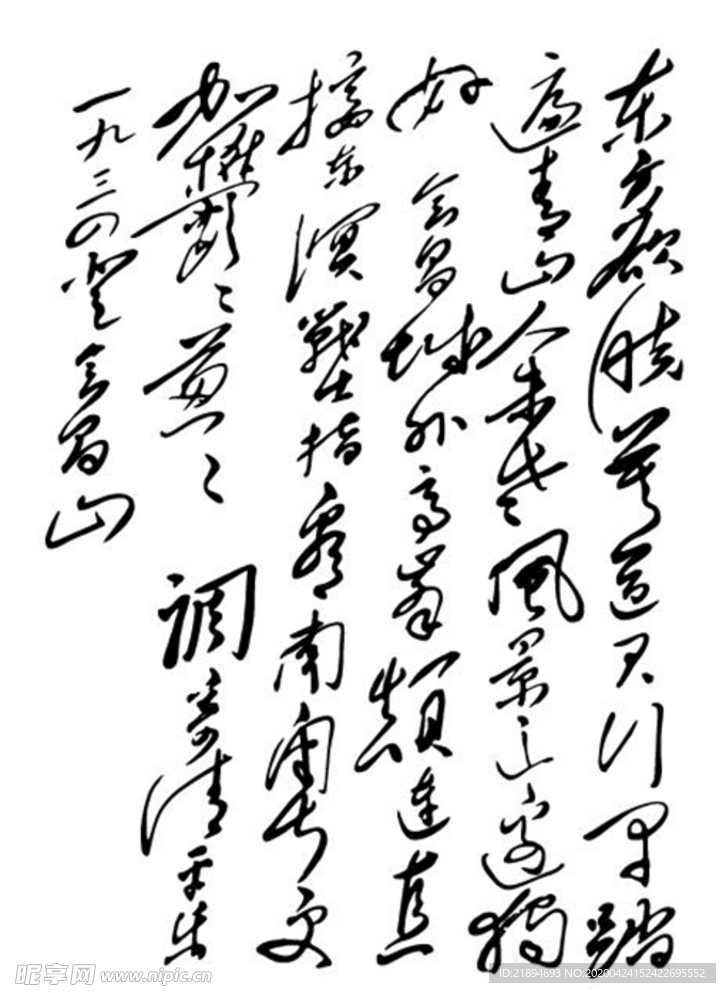 东方欲晓莫道君行早踏
遍青山人未老風景这边独
好 会昌城外高峯顛連直
接东溟戰士指看南粤更
加鬱〻葱〻 調寄清平乐
一九三四登会昌山
昵享网 www.nipic.cn
ID:21894693 NO:20200424152422695552